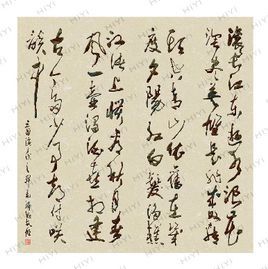 滚滚长江东逝水浪花
淘尽英雄是非成败转
头空青山依旧在几
度夕陽红白髮渔樵
江渚上惯看秋月春
风一壶浊酒喜相逢
古今多少事都付笑
谈中
HIYI